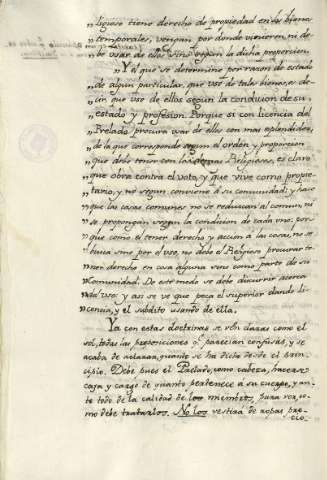 "ligioso tiene derecho de propiedad en los bienes
"temporales, vengan por donde vinieren, ni de-
"be usar de ellos sino segun la dicha proporcion.
"Y el que se determine por razon de estado
"de algun particular, que use de tales bienes, es de-
"cir, que use de ellos segun la condicion de su
"estado y profesion. Porque si con licencia del
"Prelado procura usar de ellos con mas esplendidez,
"de la que corresponde segun el orden y proporcion
"que debe tener con los demas Religiosos, es claro
"que obra contra el voto, y que vive como propie-
"tario, y no segun conviene á su comunidad; y hace
"que las cosas comunes no se reduzcan al comun, ni
"se propongan segun la condicion de cada uno: por-
"que como el tener derecho y accion á las cosas, no se
"busca sino por el uso, no debe el Religioso procurar te-
"ner derecho en cosa alguna sino como parte de su
"Comunidad. De este modo se debe discurrir acerca
"del uso: y asi se ve que peca el superior dando li-
"cencia, y el subdito usando de ella.
Ya con estas doctrinas se ven claras como el
sol, todas las proposiciones q.e parecian confusas, y se
acaba de aclarar, quanto se ha dicho desde el prin-
cipio. Debe pues el Prelado, como cabeza, hacerse
cargo de quanto pertenece á su cuerpo, y an-
te todo de la calidad de los miembros, para ver, co-
mo debe tratarlos. No los vestirá de ropas pre-
cio-